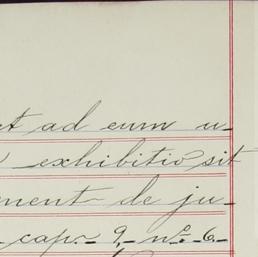 et ad eum u-
exhibitio sit
ment de ju-
cap. 9, no. 6